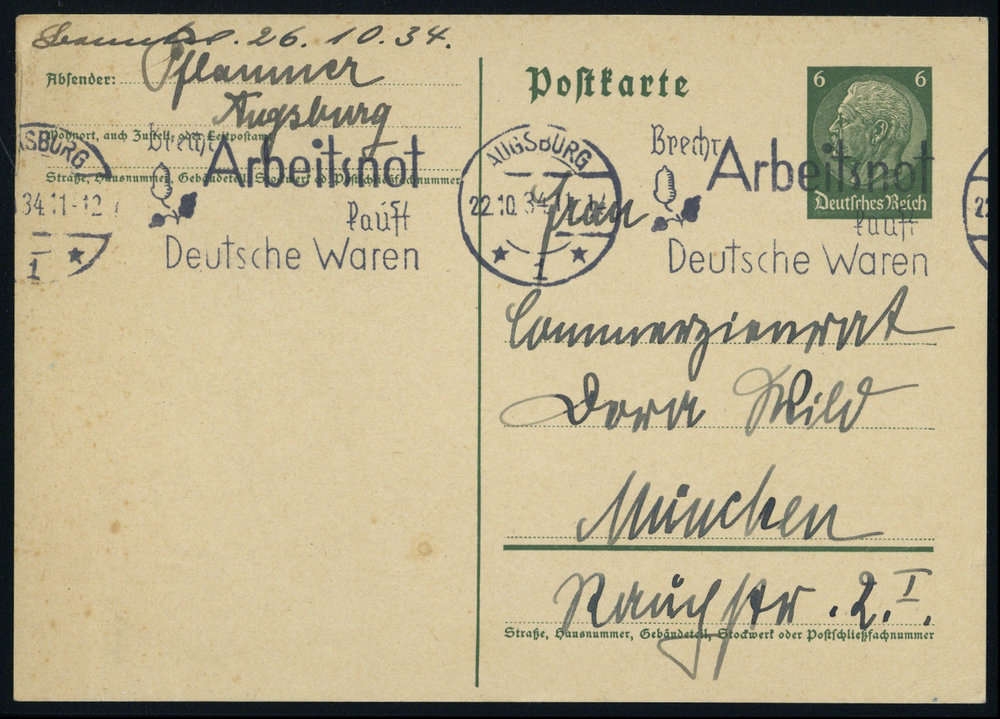 26.10.34.
Absender: Pflaumer
Augsburg
Wohnort, auch Zustell- oder Leitpostamt
Straße, Hausnummer, Gebäudeteil, Stockwerk od. Postschließfachnummer
SBURG
34.11-12
1
Brecht
Arbeitsnot
kauft
Deutsche Waren
Postkarte
6 6
Deutsches Reich
AUGSBURG
22.10.34.11-12
1
Brecht
Arbeitsnot
kauft
Deutsche Waren
22
Frau
Commerzienrat
Dora Wild
München
Rauchstr. 2. I.
Straße, Hausnummer, Gebäudeteil, Stockwerk oder Postschließfachnummer